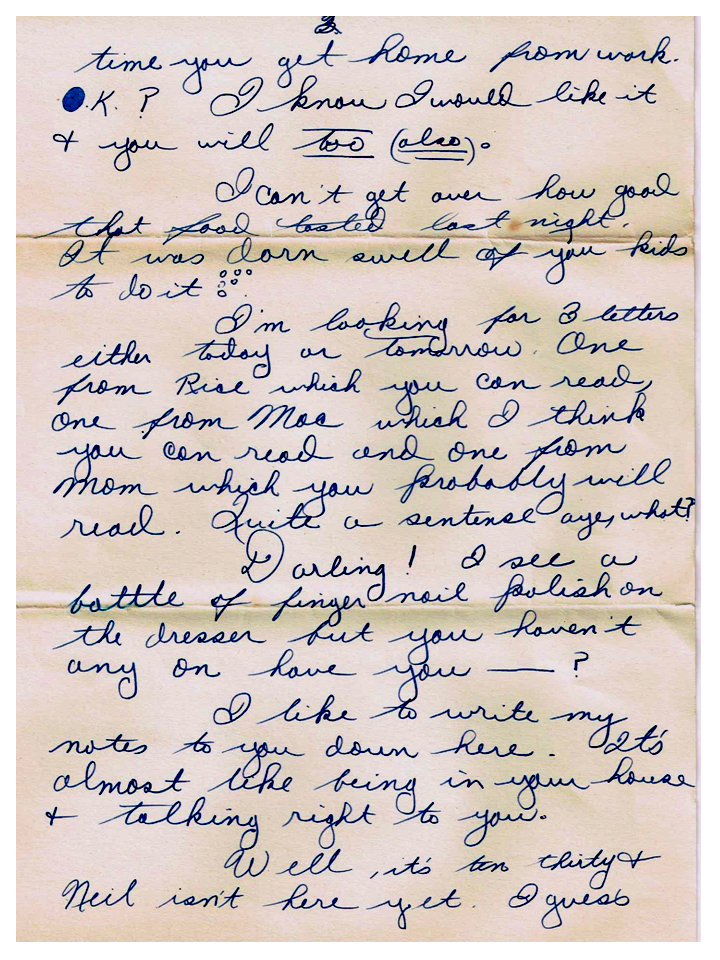 3.
time you get home from work.
O.K. ? I know I would like it
& you will too (also).
I can't get over how good
that food tasted last night.
It was darn swell of you kids
to do it
I'm looking for 3 letters
either today or tomorrow. One
from Rise which you can read,
one from Mac which I think
you can read and one from
Mom which you probably will
read. Quite a sentense aye, what?
Darling! I see a
bottle of finger nail polish on
the dresser but you haven't
any on have you — ?
I like to write my
notes to you down here. It's
almost like being in your house
& talking right to you.
Well, it's ten thirty &
Neil isn't here yet. I guess